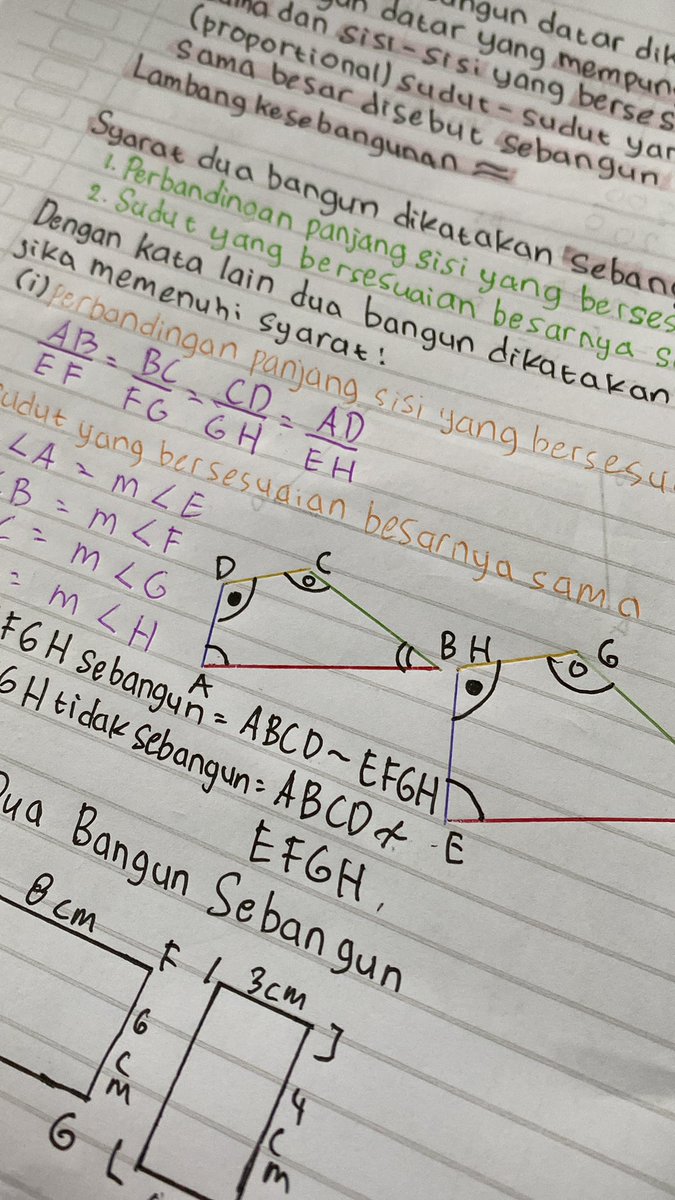 datar yang mempun
dan sisi-sisi yang berses
(proportional) sudut-sudut yan
sama besar disebut sebangun
Lambang kesebangunan ≈
Syarat dua bangun dikatakan sebang
1. Perbandingan panjang sisi yang berses
2. Sudut yang bersesuaian besarnya sa
Dengan kata lain dua bangun dikatakan
jika memenuhi syarat:
(i) perbandingan panjang sisi yang bersesu
AB/EF = BC/FG = CD/GH = AD/EH
sudut yang bersesuaian besarnya sama
<A = m<E
<B = m<F
= m<G
= m<H
D C
A B
H G
E
FGH sebangun = ABCD ~ EFGH
GH tidak sebangun = ABCD ≁
EFGH.
Dua Bangun Sebangun
8cm
F
6 cm
G
I 3cm J
4 cm
L